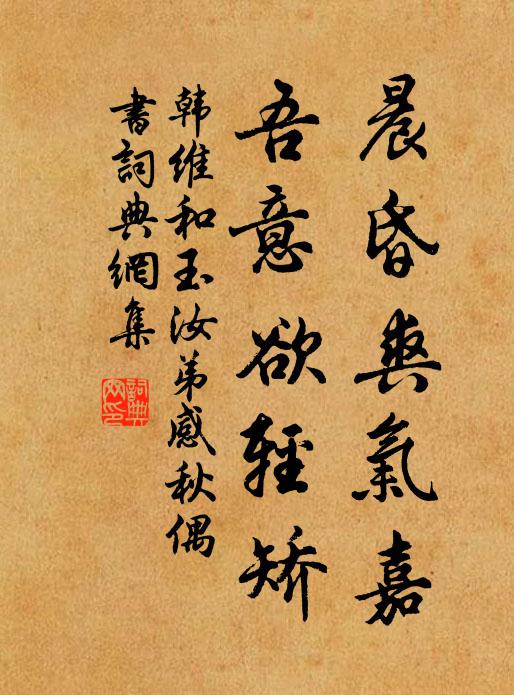 晨昏爽氣嘉
吾意欲輕矯
韩维和玉汝弟感秋偶
書詞典網集
詞典網印